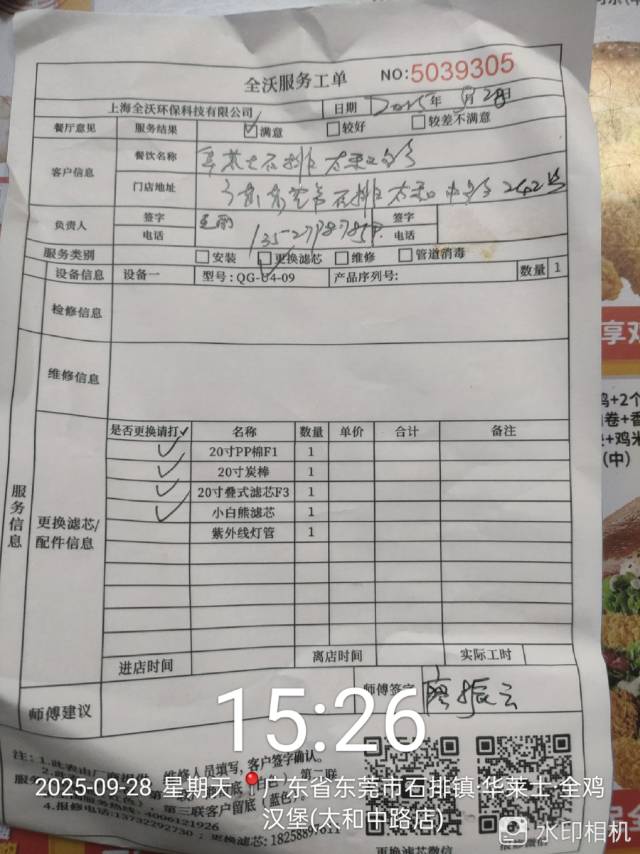 全沃服务工单 NO:5039305
上海全沃环保科技有限公司 日期 2025年 9月28日
餐厅意见 服务结果 ☑满意 □较好 □较差不满意
客户信息 餐饮名称 华莱士石排太和中路
门店地址 广东东莞市石排太和中路242号
负责人 签字 签字
电话 电话
服务类别 □安装 ☑更换滤芯 □维修 □管道消毒
设备信息 设备一 型号:QG-U4-09 产品序列号: 数量 1
检修信息
维修信息
服务信息
更换滤芯/配件信息
是否更换请打✓ 名称 数量 单价 合计 备注
✓ 20寸PP棉F1 1
✓ 20寸炭棒 1
✓ 20寸叠式滤芯F3 1
✓ 小白熊滤芯 1
紫外线灯管 1
进店时间 离店时间 实际工时
师傅建议 师傅签字 廖振云
15:26
注:1.此表由厂商提供,维修人员填写,客户签字确认。
2025-09-28 星期天 广东省东莞市石排镇·华莱士·全鸡汉堡(太和中路店)
第三联客户留底(蓝色)。
4006121926
4.报修电话:13732292730;更换滤芯:18258897611
更换滤芯微信
水印相机
享双
鸡+2个
(中)